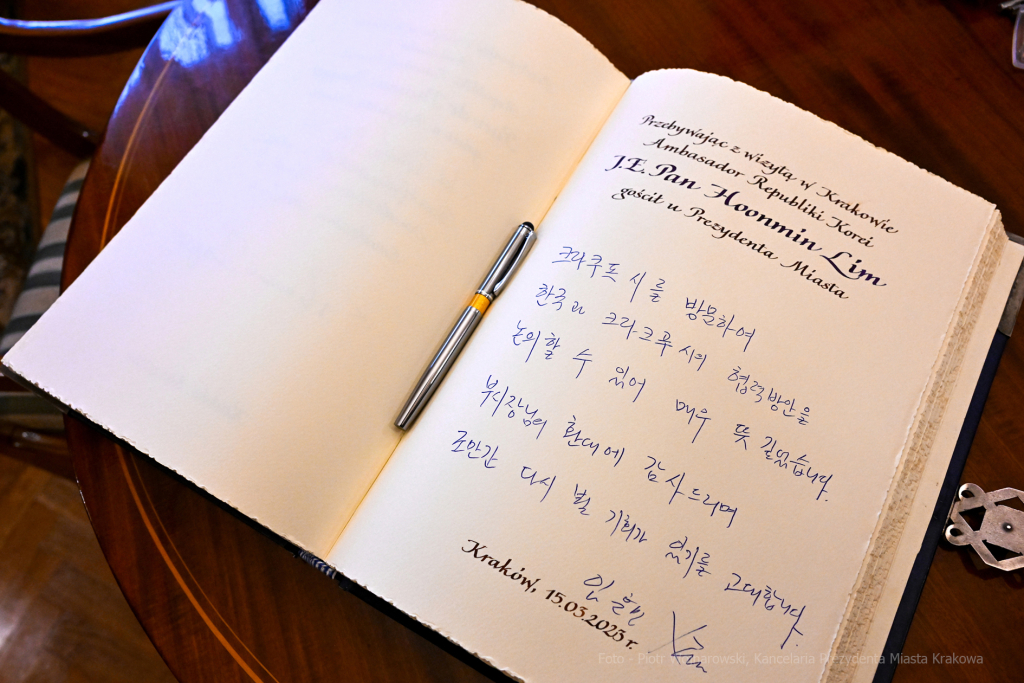 Przebywając z wizytą w Krakowie
Ambasador Republiki Korei
J.E. Pan Hoonmin Lim
gościł u Prezydenta Miasta
크라쿠프 시를 방문하여
한국과 크라크푸 시의 협력방안을
논의할 수 있어 매우 뜻 깊었습니다.
부시장님의 환대에 감사드리며
조만간 다시 뵐 기회가 있기를 고대합니다.
임훈민
Kraków, 15.05.2025 r.
Foto - Piotr Wojnarowski, Kancelaria Prezydenta Miasta Krakowa